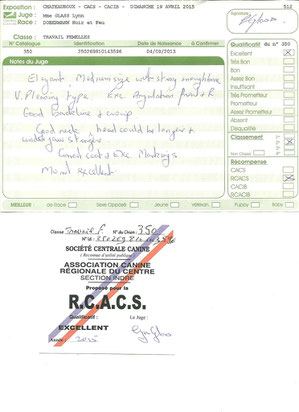 Exposition : CHATEAUROUX - CACS - CACIB - DIMANCHE 19 AVRIL 2015 512
Juge : Mme GLASS Lynn
Race : DOBERMANN Noir et Feu
Signature :
Classe : TRAVAIL FEMELLES
N° Catalogue
350
Date de Naissance
Qualificatif du n° 350
Notes du Juge
Excellent
Très Bon
Bon
Assez Bon
Insuffisant
Très Prometteur
Prometteur
Assez Prometteur
Absent
Disqualifié
Classement
Récompense
CACS
RCACS
CACIB
RCACIB
Elegant Medium size with strong
V. Pleasing type Exc Angulation front + R
Good
Good neck head could be longer +
stronger
Correct coat + Exc Markings
Movt excellent
MEILLEUR
de Race
Sexe Opposé
Jeune
Vétéran
Puppy
Baby
Classe Travail F. N° du Chien : 350
SOCIÉTÉ CENTRALE CANINE
(Reconnue d'utilité publique)
ASSOCIATION CANINE
RÉGIONALE DU CENTRE
SECTION INDRE
Proposé pour la
R.C.A.C.S.
Qualificatif : Le Juge :
EXCELLENT
Année : 2015